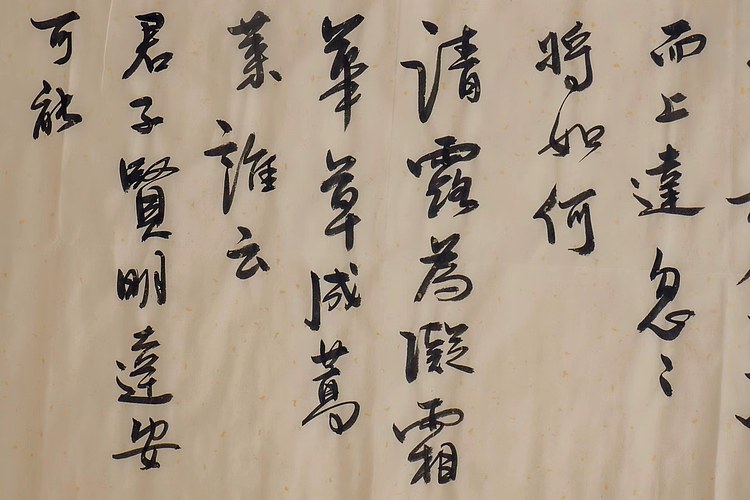 而上達忽〻
將如何
請露為凝霜
華草成蒿
萊誰云
君子賢明達安
可能